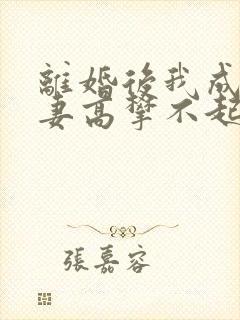 離婚後我成
妻高攀不起
張嘉容